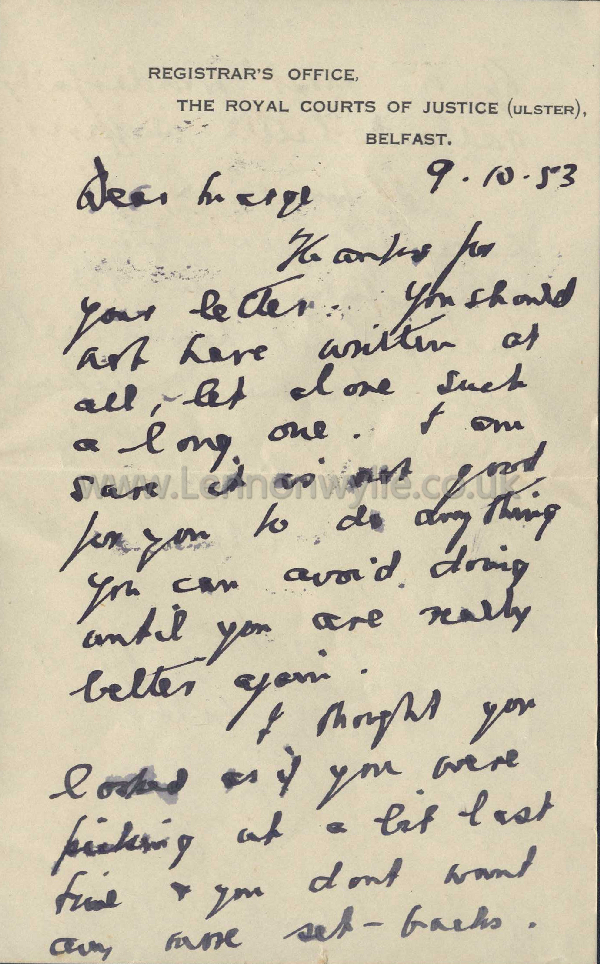 REGISTRAR'S OFFICE,
THE ROYAL COURTS OF JUSTICE (ULSTER),
BELFAST.
9.10.53
Dear Marge
Thanks for
your letter. You should
not have written at
all, let alone such
a long one. I am
sure it is not good
for you to do anything
you can avoid doing
until you are really
better again.
I thought you
looked as if you were
picking up a bit last
time & you dont want
any more set-backs.
www.Lennonwylie.co.uk